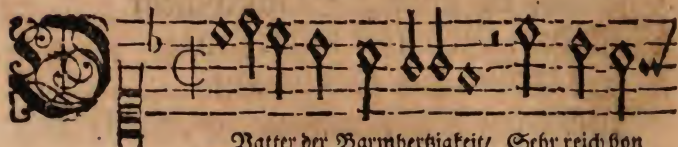 O
Vatter der Barmhertzigkeit/ Sehr reich von